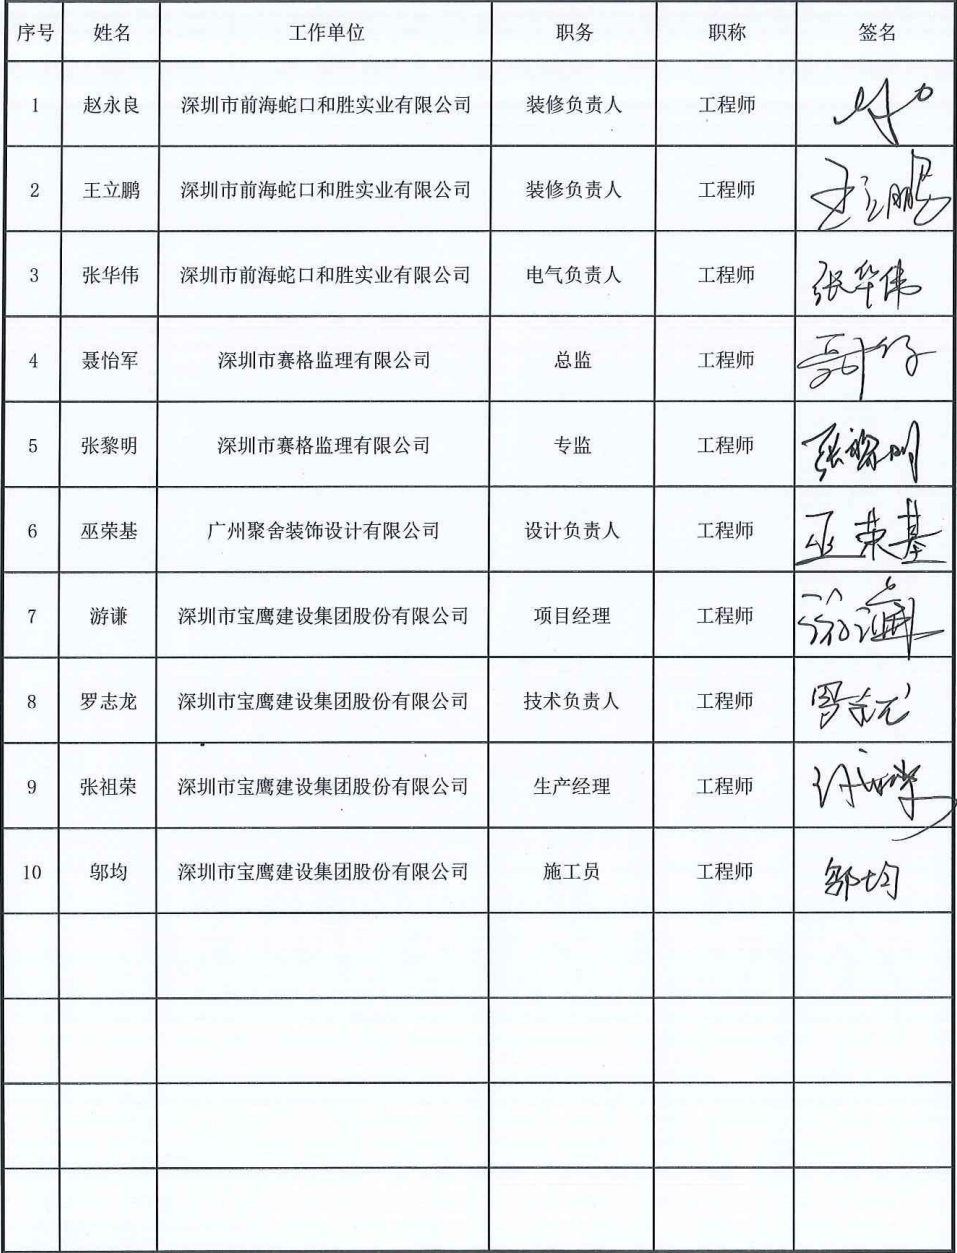 序号 姓名 工作单位 职务 职称 签名
1 赵永良 深圳市前海蛇口和胜实业有限公司 装修负责人 工程师
2 王立鹏 深圳市前海蛇口和胜实业有限公司 装修负责人 工程师 王立鹏
3 张华伟 深圳市前海蛇口和胜实业有限公司 电气负责人 工程师 张华伟
4 聂怡军 深圳市赛格监理有限公司 总监 工程师
5 张黎明 深圳市赛格监理有限公司 专监 工程师 张黎明
6 巫荣基 广州聚舍装饰设计有限公司 设计负责人 工程师 巫荣基
7 游谦 深圳市宝鹰建设集团股份有限公司 项目经理 工程师 游谦
8 罗志龙 深圳市宝鹰建设集团股份有限公司 技术负责人 工程师 罗志龙
9 张祖荣 深圳市宝鹰建设集团股份有限公司 生产经理 工程师
10 邬均 深圳市宝鹰建设集团股份有限公司 施工员 工程师 邬均